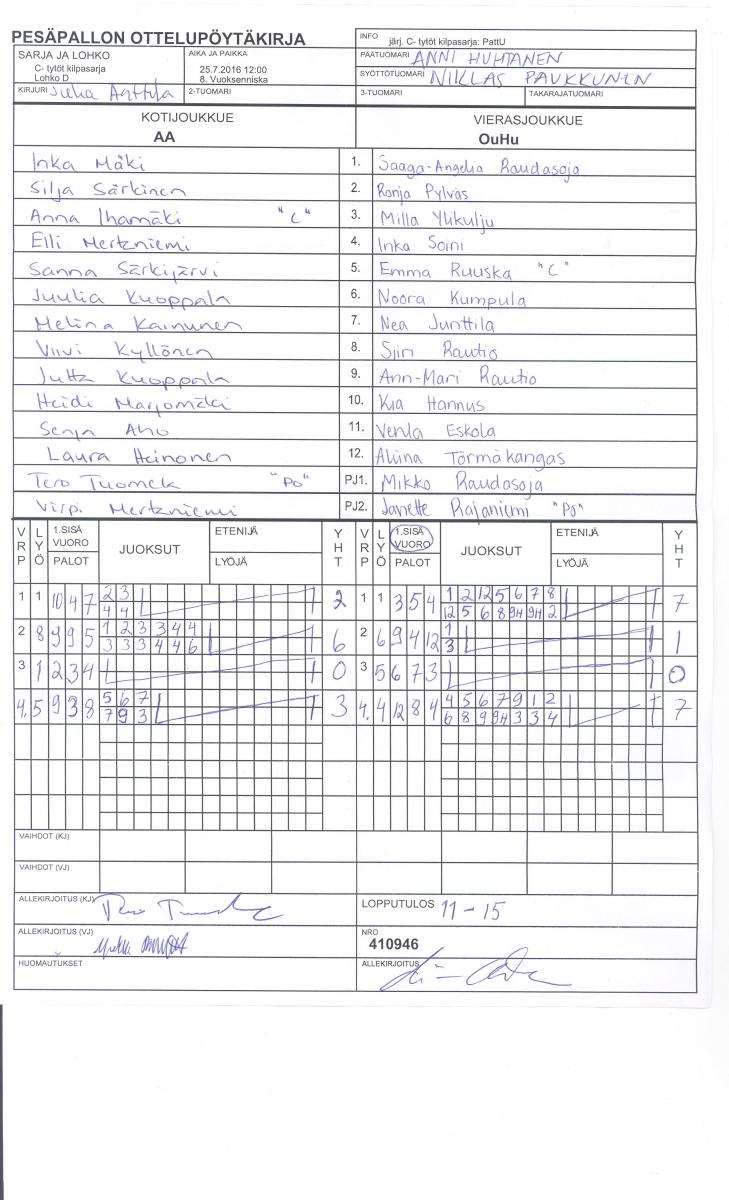 PESÄPALLON OTTELUPÖYTÄKIRJA
INFO järj. C- tytöt kilpasarja: PattU
SARJA JA LOHKO
C- tytöt kilpasarja
Lohko D
AIKA JA PAIKKA
25.7.2016 12:00
8. Vuoksenniska
PÄÄTUOMARI ANNI HUHTANEN
SYÖTTÖTUOMARI NIKLAS PAUKKUNEN
KIRJURI Juha Anttila
2-TUOMARI
3-TUOMARI
TAKARAJATUOMARI
KOTIJOUKKUE
AA
VIERASJOUKKUE
OuHu
Inka Mäki 1. Saaga-Angelia Raudasoja
Silja Särkinen 2. Ronja Pylväs
Anna Ihamäki "C" 3. Milla Ylikulju
Elli Mertaniemi 4. Inka Soini
Sanna Särkijärvi 5. Emma Ruuska "C"
Juulia Kuoppala 6. Noora Kumpula
Melina Kainunen 7. Nea Junttila
Viivi Kyllönen 8. Siiri Rautio
Jutta Kuoppala 9. Ann-Mari Rautio
Heidi Marjomäki 10. Kia Hannus
Senja Aho 11. Venla Eskola
Laura Heinonen 12. Aliina Törmäkangas
Tero Tuomela "PO" PJ1. Mikko Raudasoja
Virpi Mertaniemi PJ2. Janette Rajaniemi "PO"
VRP LYÖ 1.SISÄ VUORO PALOT JUOKSUT ETENIJÄ LYÖJÄ YHT VRP LYÖ 1.SISÄ VUORO PALOT JUOKSUT ETENIJÄ LYÖJÄ YHT
1 1 10 4 7 2 3 2 1 1 3 5 4 1 2 12 5 6 7 8 7
4 4 12 5 6 8 9H 9H 2
2 8 9 9 5 1 2 3 3 4 4 6 2 6 9 4 12 1 1
3 3 3 4 4 6 3
3 1 2 3 4 0 3 5 6 7 3 0
4. 5 9 3 8 5 6 7 3 4. 4 12 8 4 4 5 6 7 9 1 2 7
7 9 3 6 8 9 9H 3 3 4
VAIHDOT (KJ)
VAIHDOT (VJ)
ALLEKIRJOITUS (KJ)
LOPPUTULOS 11 - 15
ALLEKIRJOITUS (VJ)
NRO
410946
HUOMAUTUKSET
ALLEKIRJOITUS